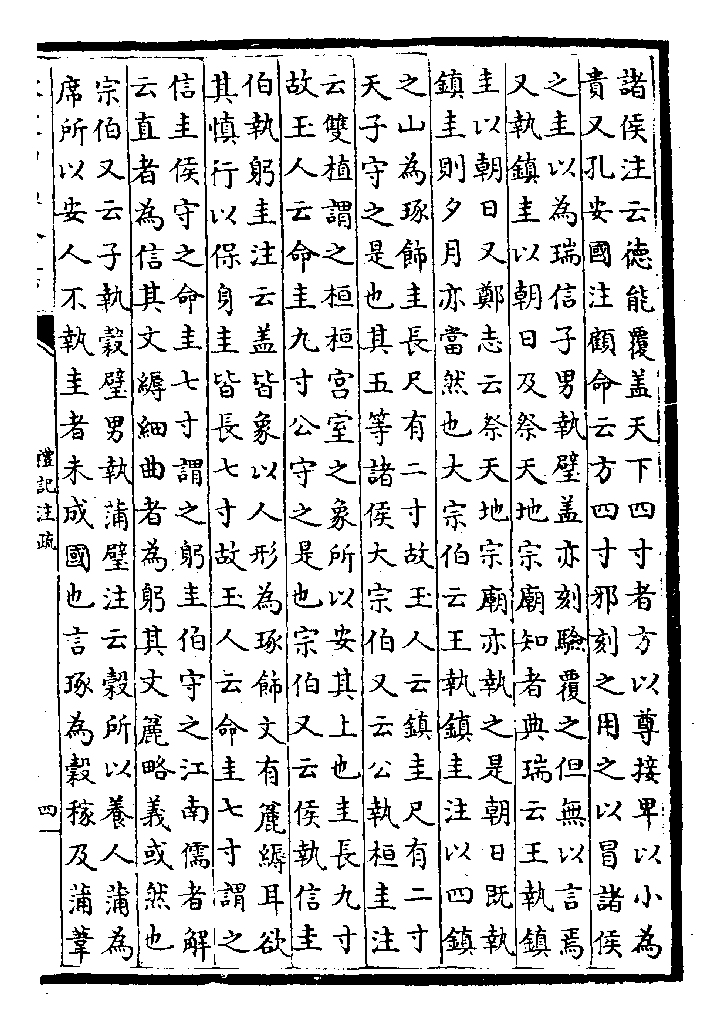 諸侯注云德能覆盖天下四寸者方以尊接卑以小為
貴又孔安國注顧命云方四寸邪刻之用之以冒諸侯
之圭以為瑞信子男執璧盖亦刻驗覆之但無以言焉
又執鎮圭以朝日及祭天地宗廟知者典瑞云王執鎮
圭以朝日又鄭志云祭天地宗廟亦執之是朝日既執
鎮圭則夕月亦當然也大宗伯云王執鎮圭注以四鎮
之山為琢飾圭長尺有二寸故玉人云鎮圭尺有二寸
天子守之是也其五等諸侯大宗伯又云公執桓圭注
云雙植謂之桓桓宮室之象所以安其上也圭長九寸
故玉人云命圭九寸公守之是也宗伯又云侯執信圭
伯執躬圭注云盖皆象以人形為琢飾文有麄縟耳欲
其慎行以保身圭皆長七寸故玉人云命圭七寸謂之
信圭侯守之命圭七寸謂之躬圭伯守之江南儒者解
云直者為信其文縟細曲者為躬其文麄略義或然也
宗伯又云子執穀璧男執蒲璧注云穀所以養人蒲為
席所以安人不執圭者未成國也言琢為穀稼及蒲葦
禮記注疏
四一